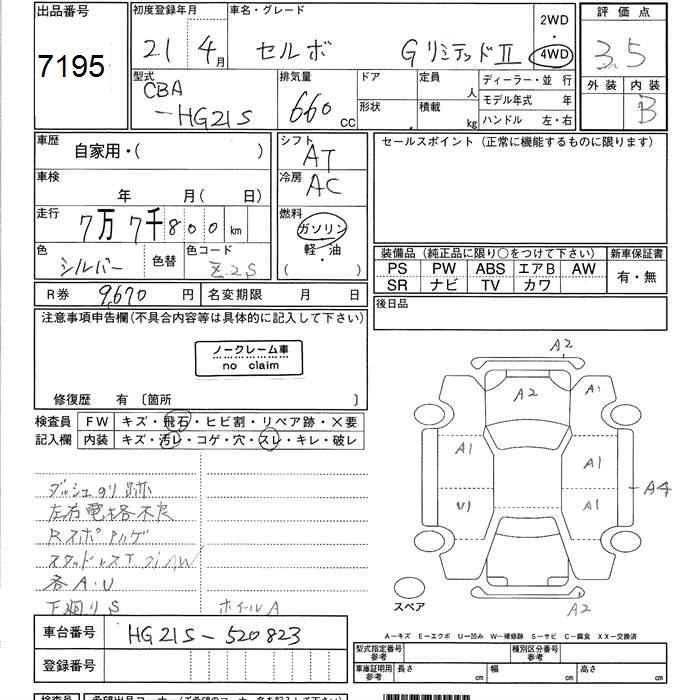 出品番号 7195
初度登録年月 21年 4月
車名・グレード セルボ GリミテッドⅡ
2WD・4WD
評価点 3.5
外装 内装 B
型式 CBA-HG21S
排気量 660 CC
ドア 形状
定員 人
積載 kg
ディーラー・並 行
モデル年式 年
ハンドル 左・右
車歴 自家用・( )
車検 年 月(日)
走行 7万7千800km
色 シルバー 色替
色コード Z2S
シフト AT
冷房 AC
燃料 ガソリン 軽・油 ( )
セールスポイント(正常に機能するものに限ります)
装備品(純正品に限り○をつけて下さい)
新車保証書
PS PW ABS エアB AW
有・無
SR ナビ TV カワ
R券 9,670円
名変期限 月 日
後日品
注意事項申告欄(不具合内容等は具体的に記入して下さい)
ノークレーム車
no claim
修復歴 有 〔箇所 〕
検査員記入欄
FW キズ・飛石・ヒビ割・リペア跡・×要
内装 キズ・汚レ・コゲ・穴・スレ・キレ・破レ
ダッシュのり跡
左右電格不良
Rスポ ハゲ
スタッドレスT 社外AW
各A・U
下廻りS ホイールA
A2
A2
A1
A1
A1
U1
A1
A4
A2
スペア
A-キズ E-エクボ U-凹み W-補修跡 S-サビ C-腐食 XX-交換済
車台番号 HG21S-520823
登録番号
型式指定番号 参考
種別区分番号 参考
車庫証明用 参考 長さ cm 幅 cm 高さ cm